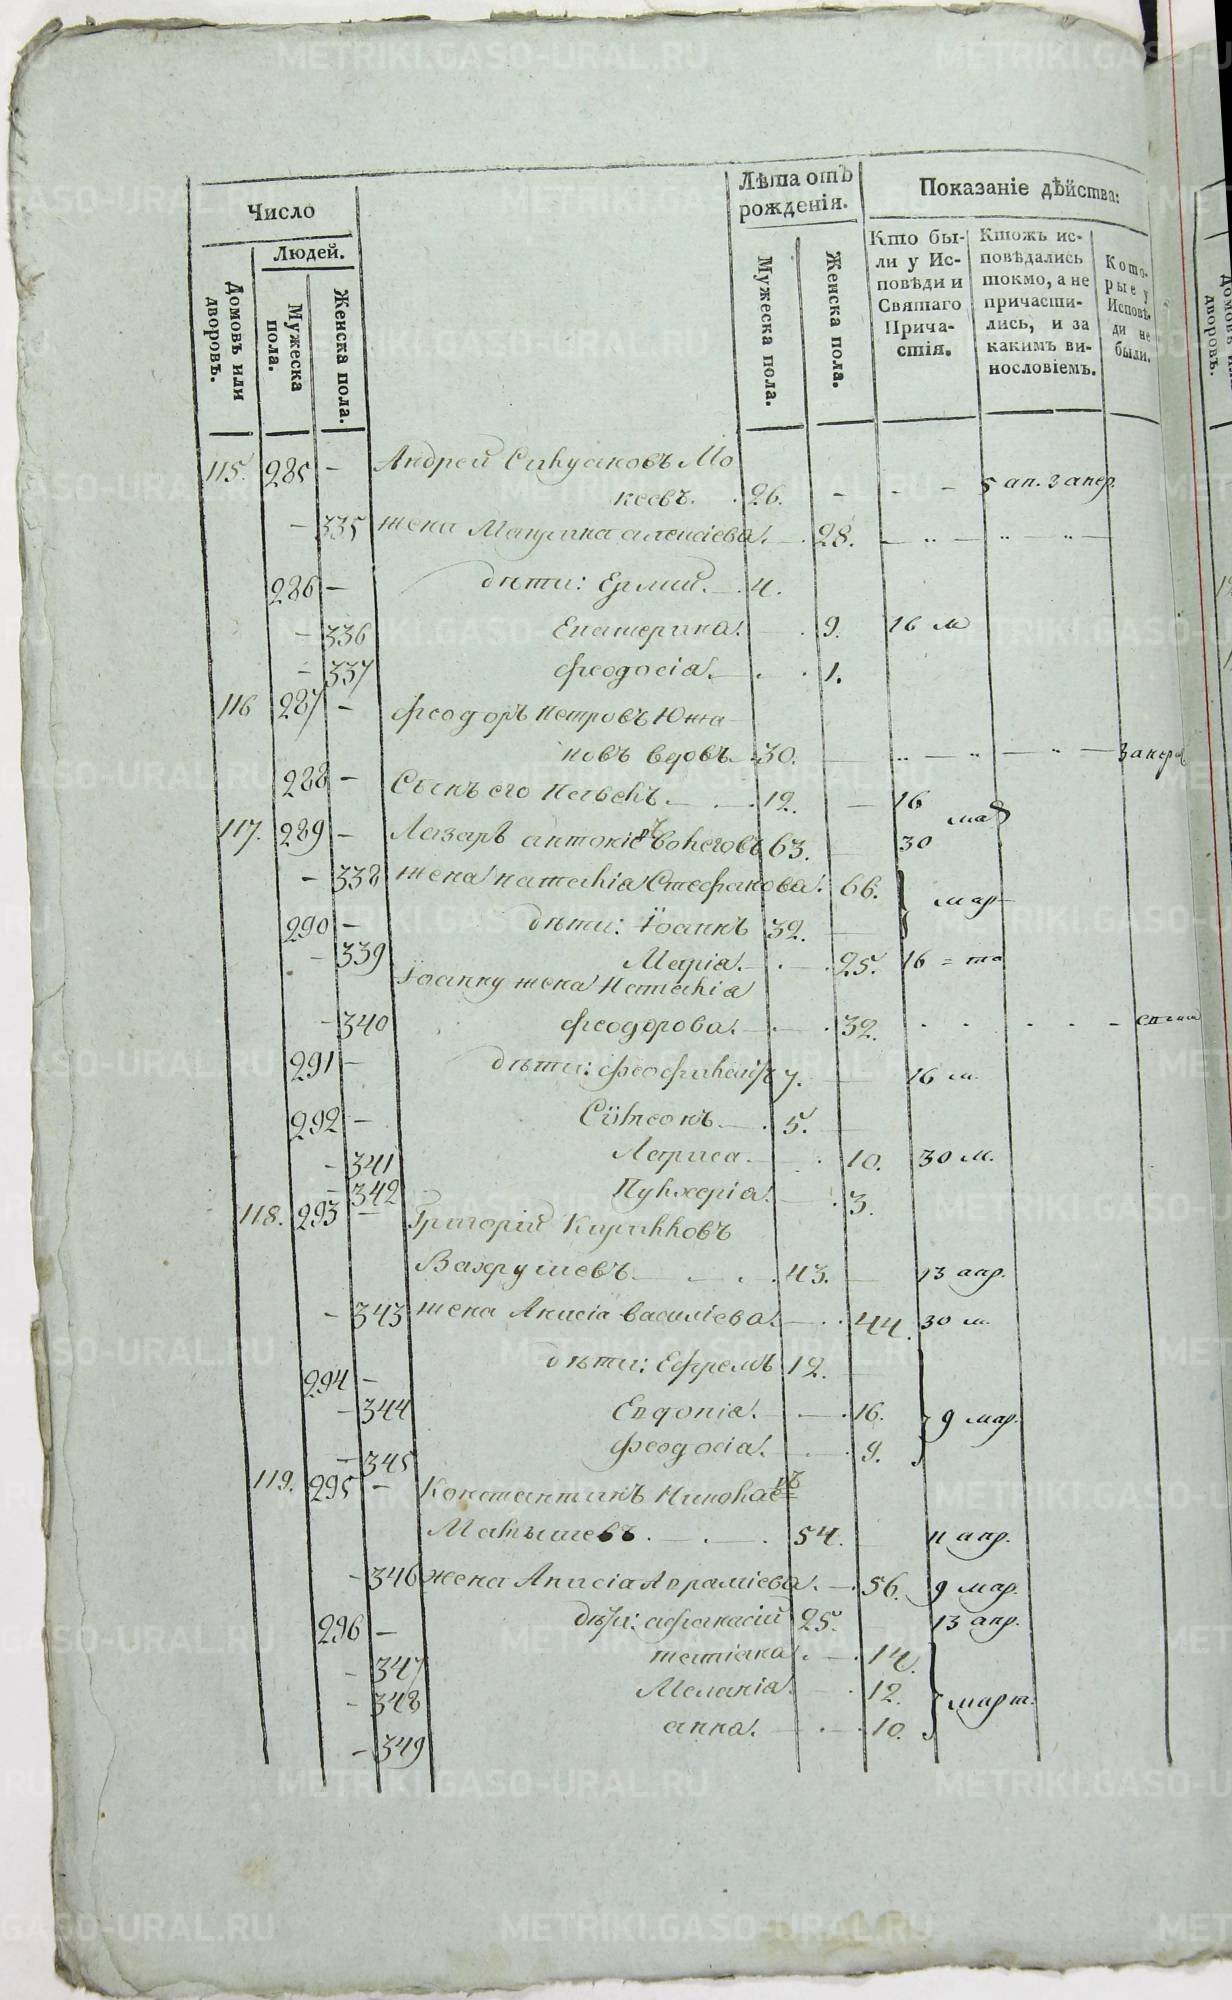 Число
Людей.
Домовъ или дворовъ.
Мужеска пола.
Женска пола.
Лѣта отъ рожденія.
Мужеска пола.
Женска пола.
Показаніе дѣйства:
Кто были у Исповѣди и Святаго Причастія.
Ктожъ исповѣдались токмо, а не причастились, и за какимъ винословіемъ.
Которые у Исповѣди не были.
115. 285 — Андрей Силуановъ Мо
кеевъ. . 26. — — — 5 ап.
— 335 жена алексіева. — . 28. — „ — „ — „ —
286 — дѣти: Ермий. — 4.
— 336 Екатерина. — . 9. 16 м
— 337 феодосія. — . . 1.
116 287 — феодоръ Петровъ Южа
ковъ вдовъ. 30. — „ — „ — „ —
288 — Сынъ его Павелъ. — . — . 12. — 16 мая
117. 289 — Лазарь антоніевъ 63. — 30
— 338 жена наталіа Стефанова. 66. мар
290 — дѣти: Іоаннъ 32. —
— 339 Маріа. — . — . 25. 16
Іоанну жена Наталіа
— 340 феодорова. — . — . 32. . . . . . —
291 — дѣти: феофилактъ 7. — 16 м.
292 — Сѵмеонъ. — . 5. —
— 341 Лариса. — . 10. 30 м.
— 342 Пулхеріа. — . 3.
118. 293 — Григорій Кирилловъ
Вахрушевъ. — . — . . 43. — 13 апр.
— 343 жена Анисіа василіева. — . . 44. 30 м.
294 — дѣти: Ефремъ 12. —
— 344 Евдокіа. — . — . 16. 9 мар.
— 345 феодосіа. — . — . 9.
119. 295 — Константинъ Николаевъ
Малышевъ. — . — . 54. 11 апр.
— 346 жена Анисіа Авраміева. — . 56. 9 мар.
296 — дѣти: афанасій 25. — 13 апр.
— 347 татіана. . — . 14.
— 348 Меланіа. — . 12. март.
— 349 анна. — . — . 10.
METRIKI.GASO-URAL.RU